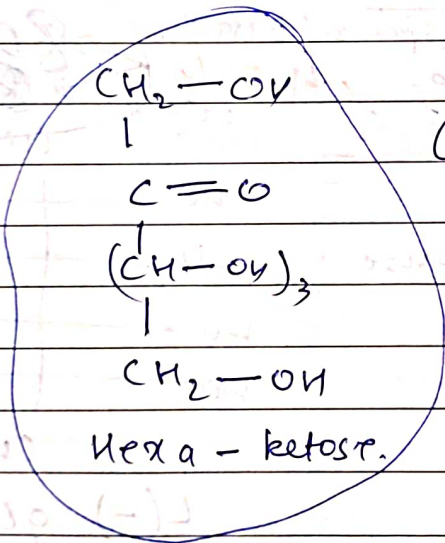 CH₂—OH
|
C=O
|
(CH—OH)₃
|
CH₂—OH
Hexa - ketose.
(